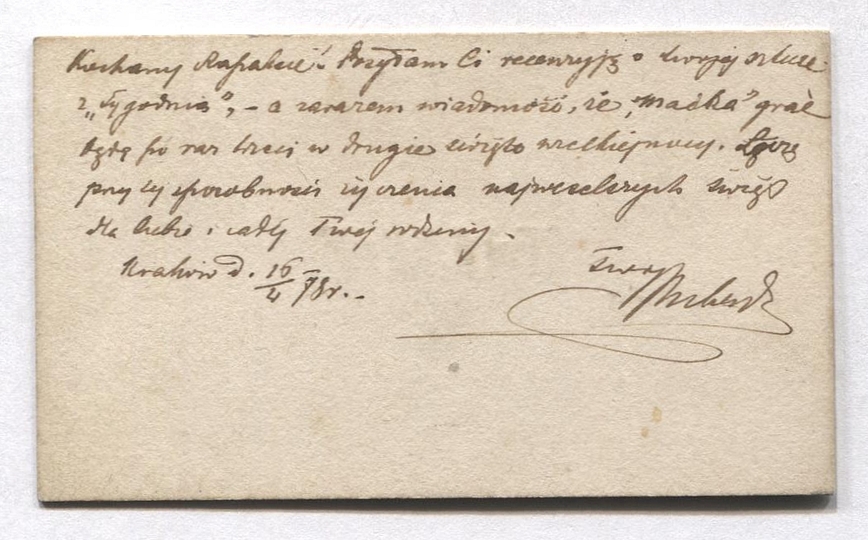 Kochany Rafale! Posyłam Ci recenzyję o twojej sztuce
z „Tygodnia”, – a zarazem wiadomość, że „Maćka” grać
będę po raz trzeci w drugie święto wielkiejnocy. Łączę
przy tej sposobności życzenia najweselszych świąt
dla Ciebie i całej Twej rodziny.
Kraków d. 16/4 78r. –
Twój